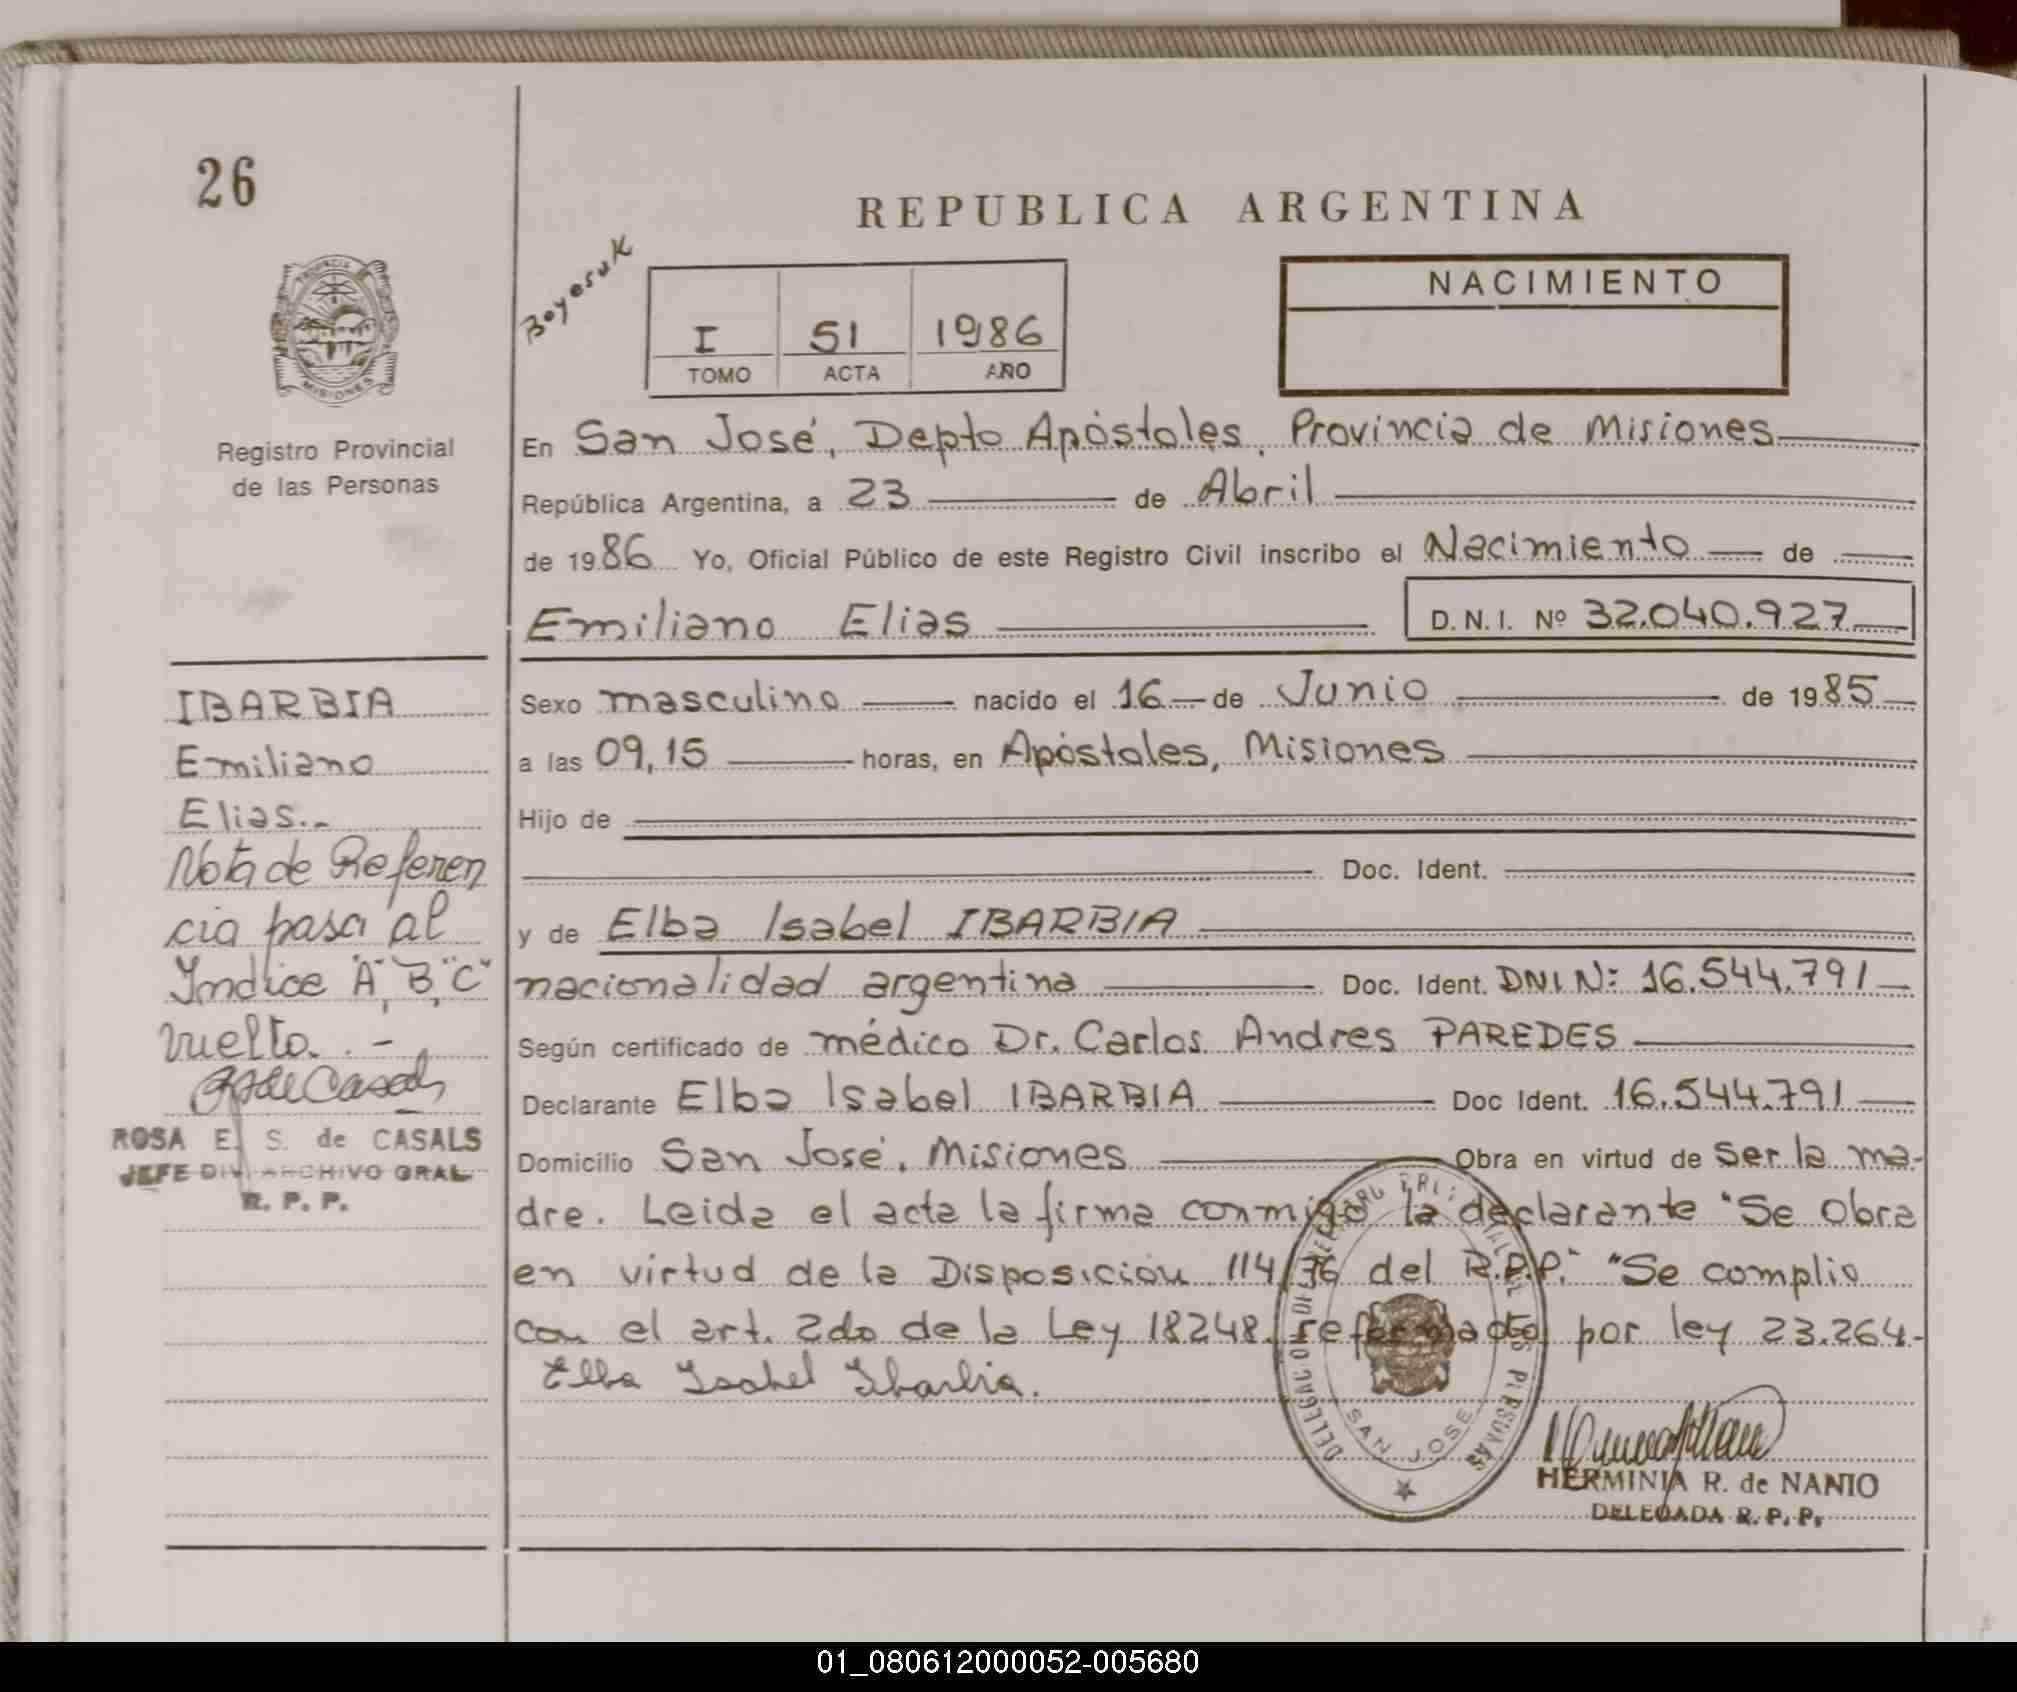 26
REPUBLICA ARGENTINA
Boyesuk
PROVINCIA
MISIONES
Registro Provincial
de las Personas
I 51 1986
TOMO ACTA AÑO
NACIMIENTO
En San José, Depto Apóstoles, Provincia de Misiones
República Argentina, a 23 de Abril
de 1986 Yo, Oficial Público de este Registro Civil inscribo el Nacimiento de
Emiliano Elias D.N.I. Nº 32.040.927
IBARBIA
Emiliano
Elias.-
Nota de Referen
cia pasa al
Indice "A", "B", "C"
vuelto. -
ROSA E. S. de CASALS
JEFE DIV. ARCHIVO GRAL.
R. P. P.
Sexo masculino nacido el 16 de Junio de 1985
a las 09,15 horas, en Apóstoles, Misiones
Hijo de
Doc. Ident.
y de Elba Isabel IBARBIA
nacionalidad argentina Doc. Ident. DNI N: 16.544.791
Según certificado de médico Dr. Carlos Andres PAREDES
Declarante Elba Isabel IBARBIA Doc Ident. 16.544.791
Domicilio San José, Misiones Obra en virtud de ser la ma-
dre. Leida el acta la firma conmigo la declarante "Se obra
en virtud de la Disposición 114/76 del R.P.P." "Se complio
con el art. 2do de la Ley 18248, reformado por ley 23.264.-
Elba Isabel Ibarbia.
SAN JOSE
HERMINIA R. de NANIO
DELEGADA R. P. P.
01_080612000052-005680